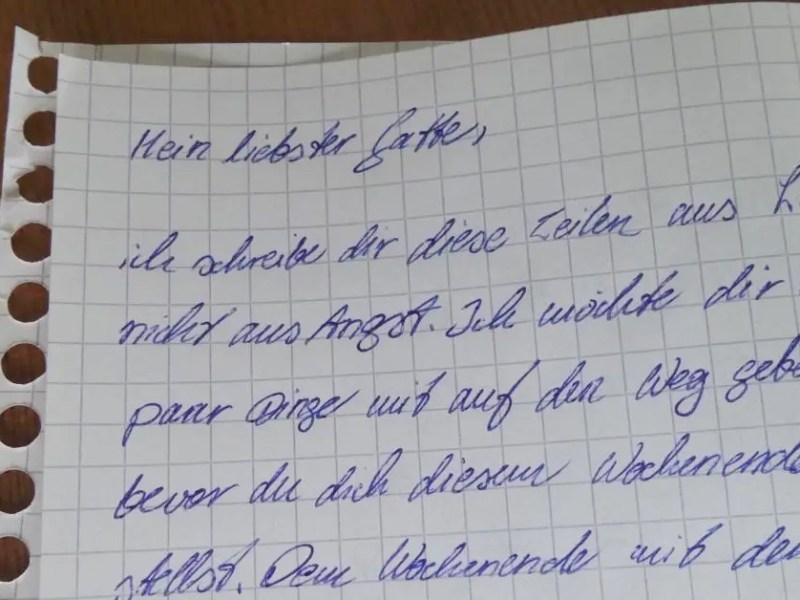 Mein liebster Gatte,
ich schreibe dir diese Zeilen aus
nicht aus Angst. Ich möchte dir
paar Dinge mit auf den Weg gebe
bevor du dich diesem Wochenende
stellst. Dem Wochenende mit de